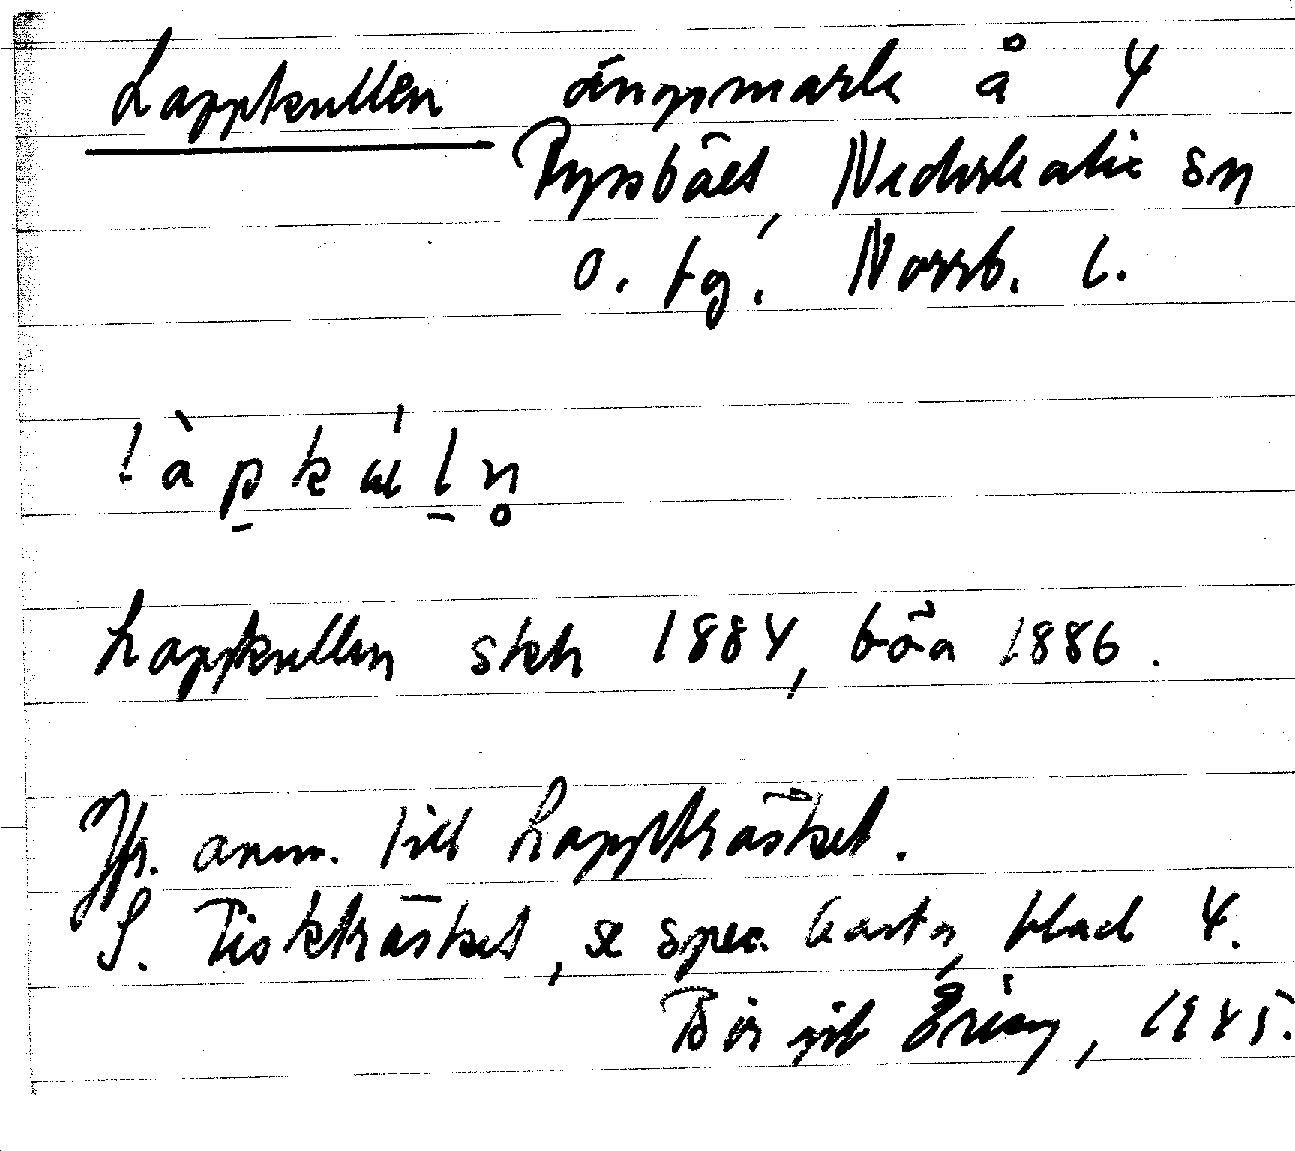 Lappkullen ängsmark å 4
Ryssbält, Nederkalix sn
o. tg. Norrb. l.
làpkúln̥
Lappkullen skeh 1884, båa 1886.
Jfr. anm. till Lappträsket.
S. Fiskträsket, se spec. karta, blad 4.
Birgit Ericz, 1945.